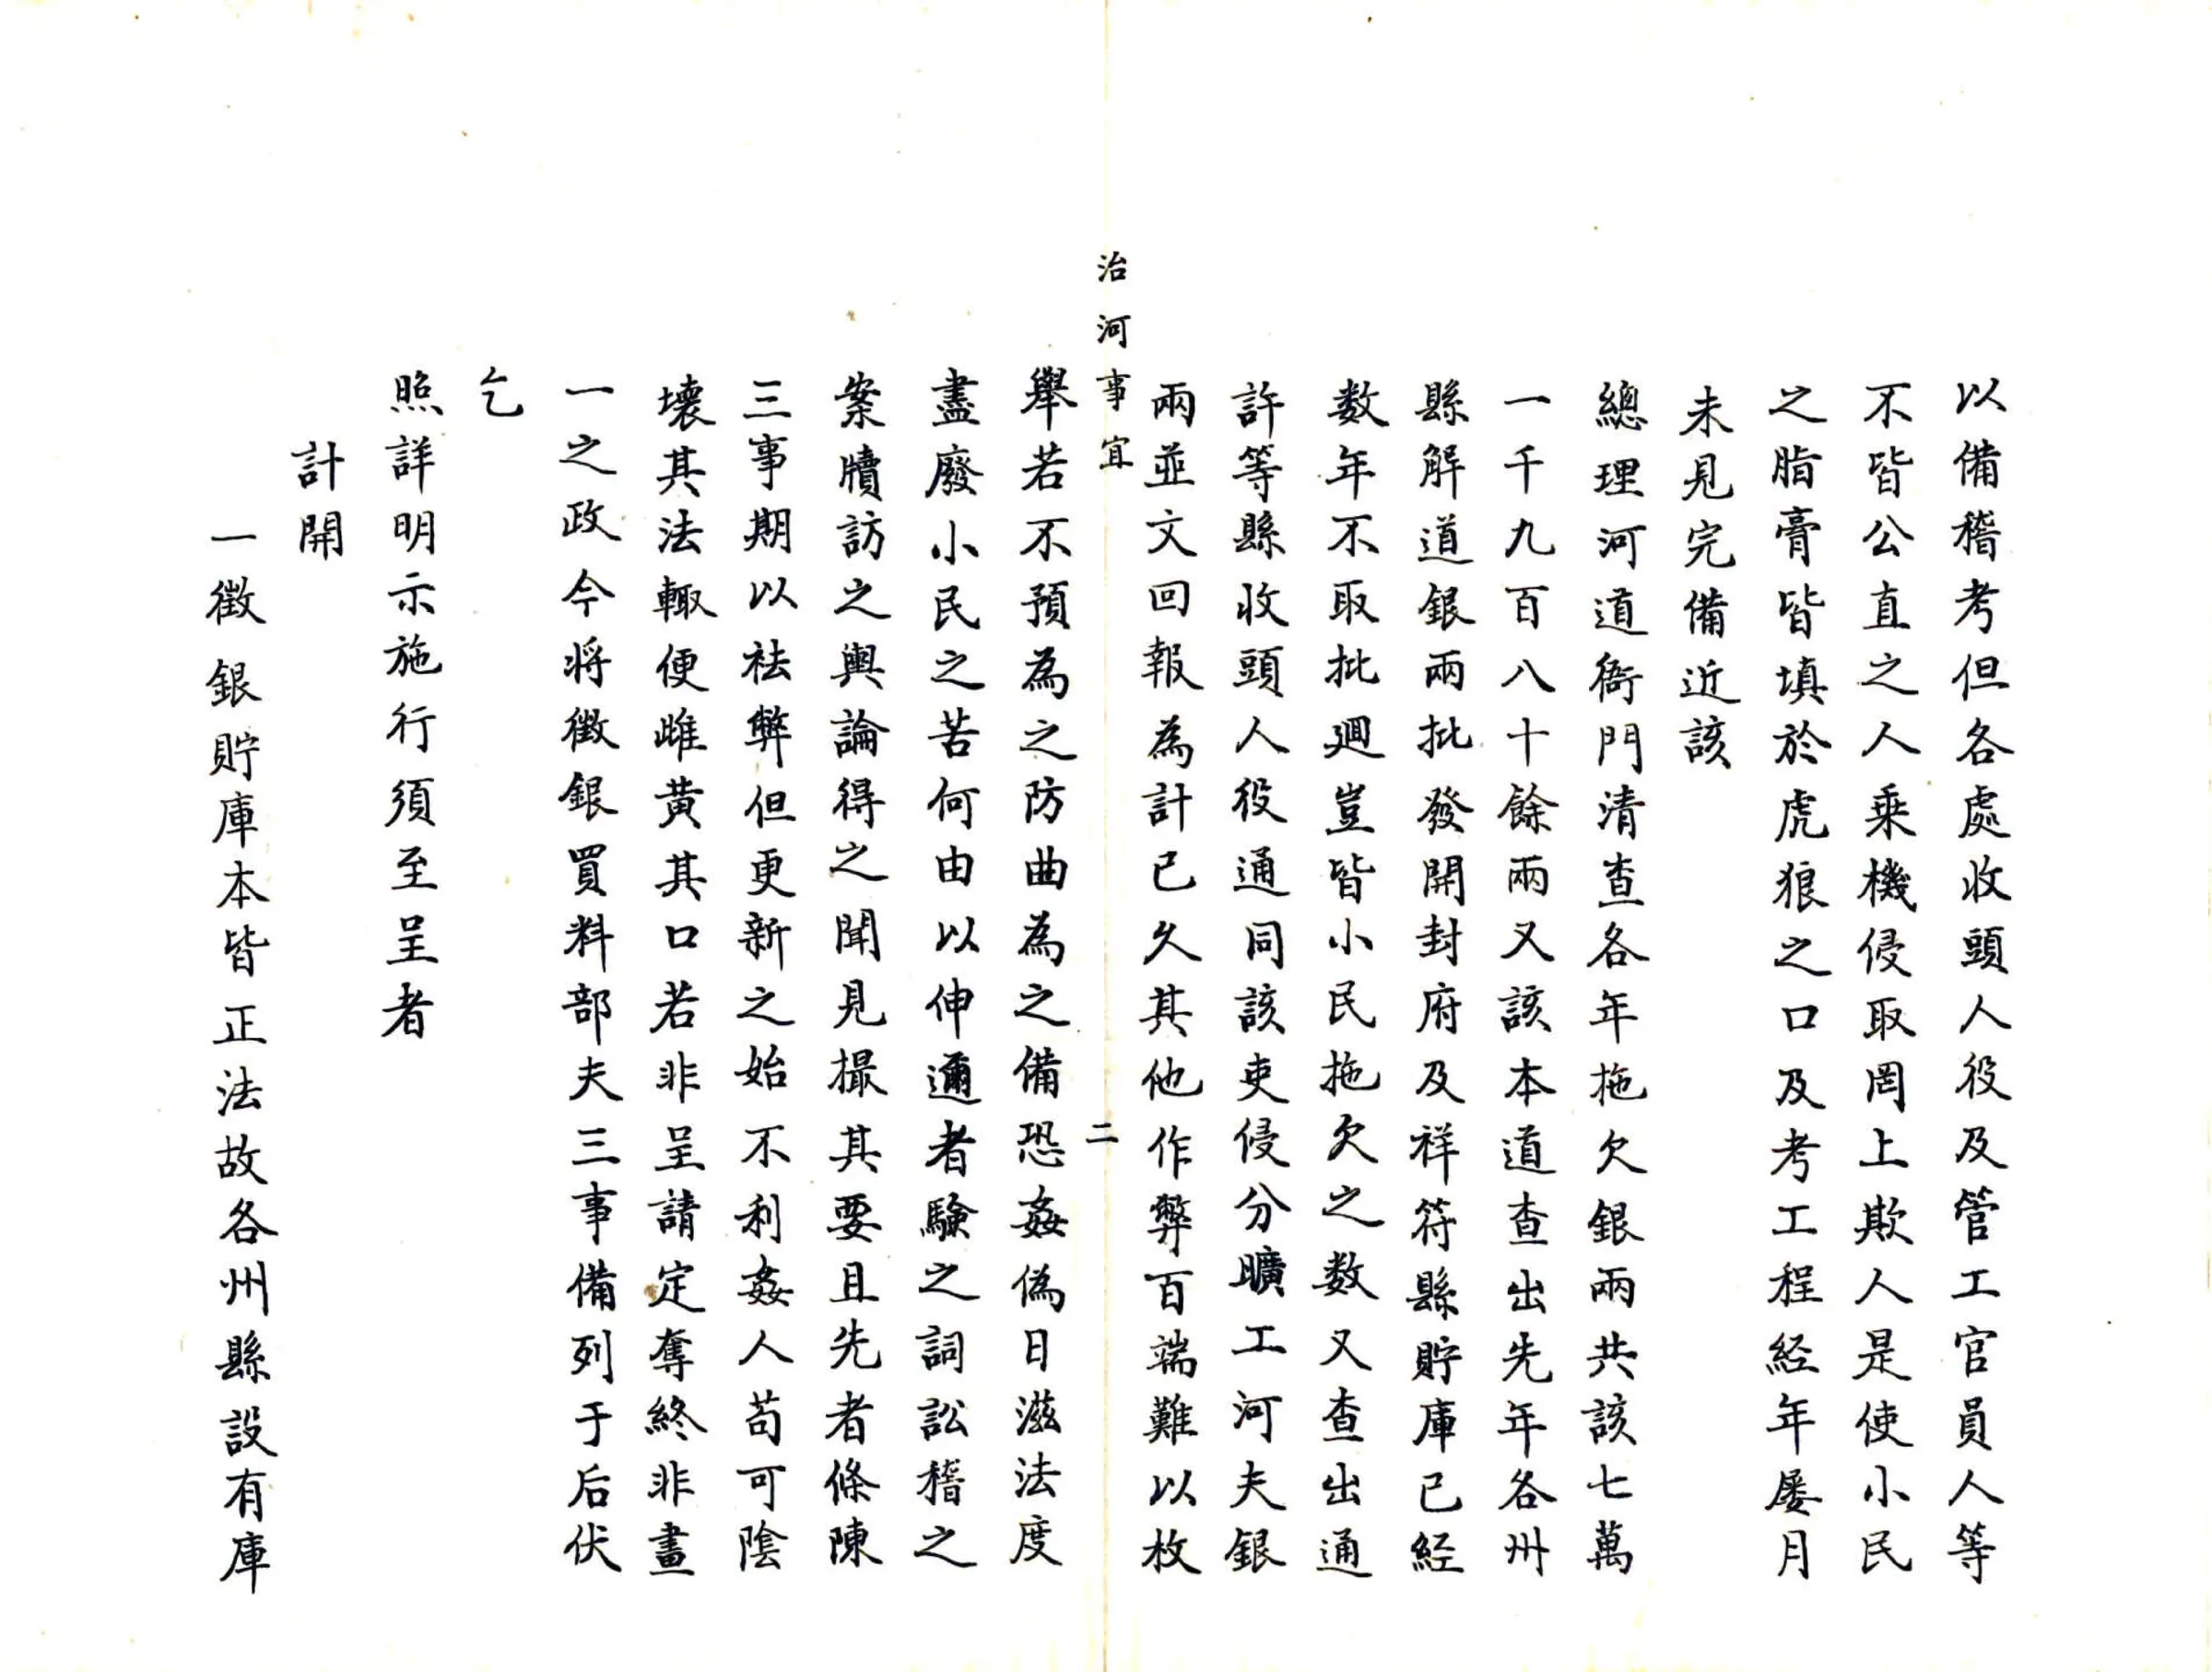 以備稽考但各處收頭人役及管工官員人等
不皆公直之人乘機侵取罔上欺人是使小民
之脂膏皆填於虎狼之口及考工程経年屡月
未見完備近該
總理河道衙門清查各年拖欠銀兩共該七萬
一千九百八十餘兩又該本道查出先年各州
縣解道銀兩批發開封府及祥符縣貯庫已経
数年不取批迴豈皆小民拖欠之数又查出通
許等縣收頭人役通同該吏侵分曠工河夫銀
兩並文回報為計已久其他作弊百端難以枚
治河事宜 二
舉若不預為之防曲為之備恐姦偽日滋法度
盡廢小民之苦何由以伸邇者驗之詞訟稽之
案牘訪之輿論得之聞見撮其要且先者條陳
三事期以袪弊但更新之始不利姦人苟可陰
壞其法輙便雌黄其口若非呈請定奪終非畫
一之政今将徴銀買料部夫三事備列于后伏
乞
照詳明示施行須至呈者
計開
一徴銀貯庫本皆正法故各州縣設有庫